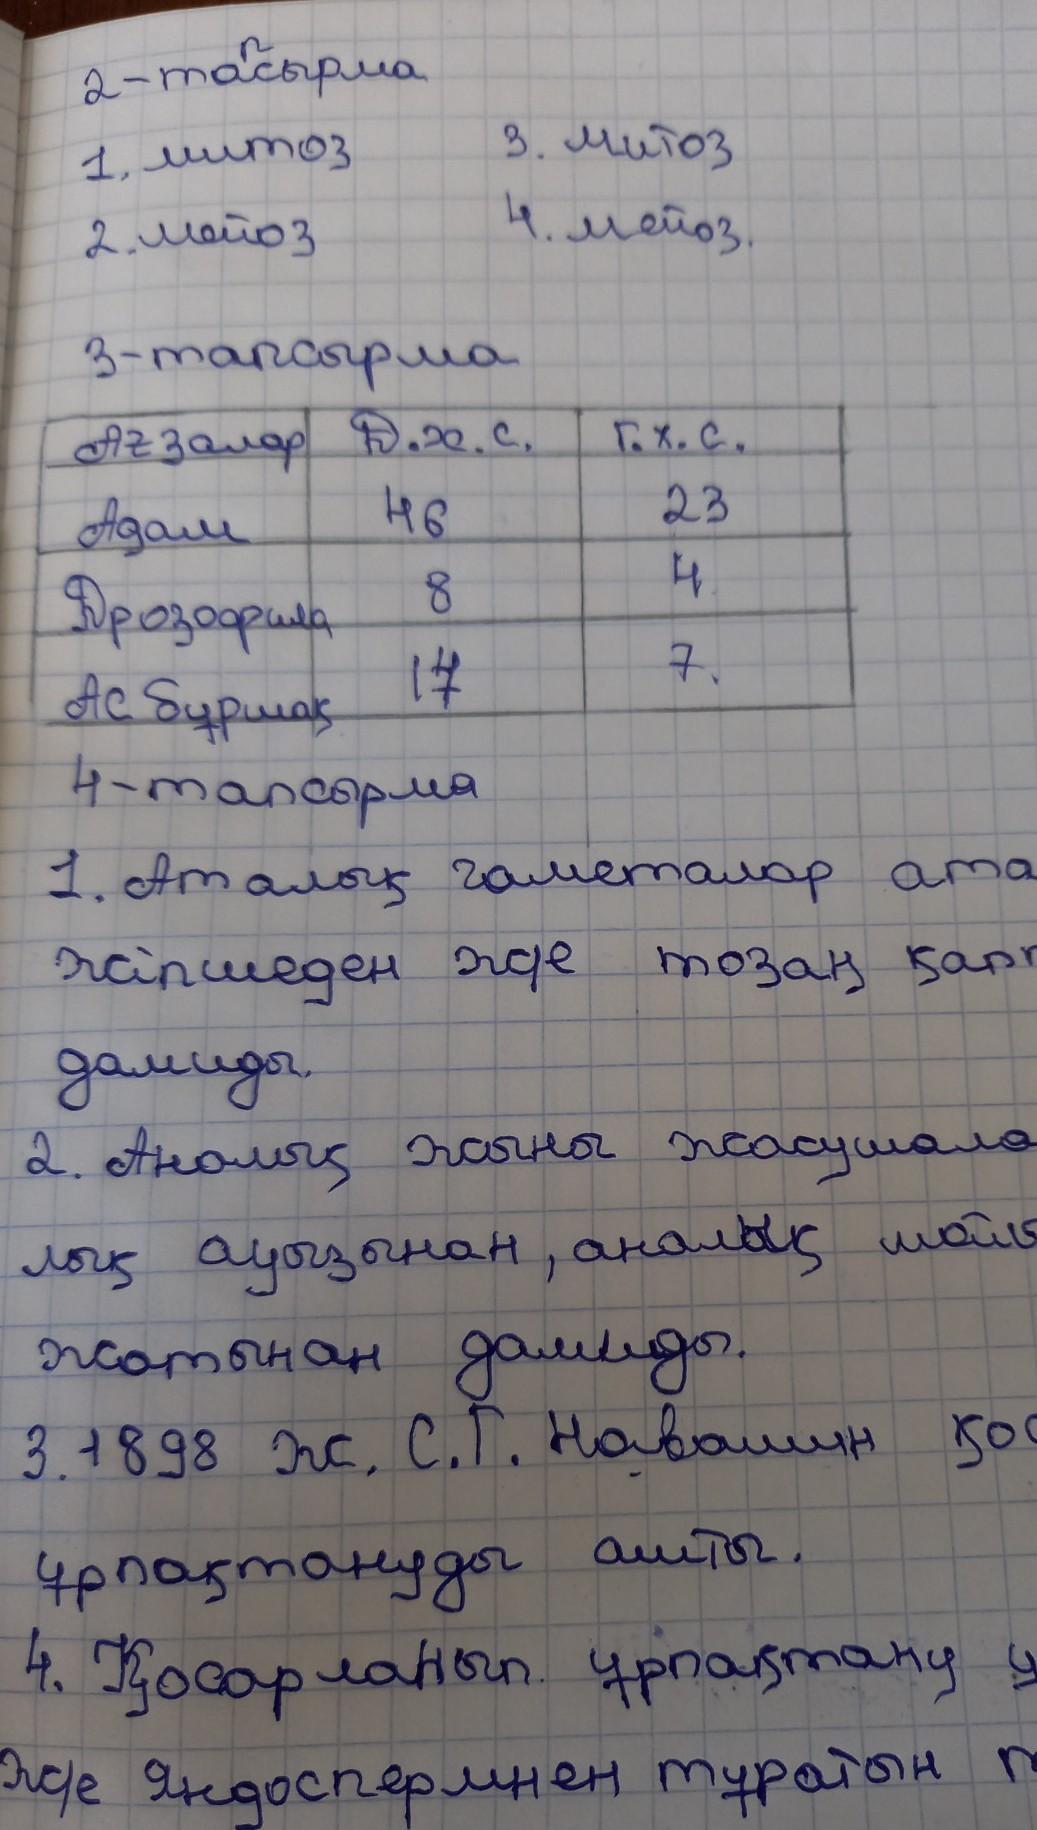 2-тапсырма
1. митоз 3. митоз
2. мейоз 4. мейоз.
3-тапсырма
Ағзалар Д.х.с. Г.х.с.
Адам 46 23
Дрозофила 8 4
Ас бұршақ 14 7.
4-тапсырма
1. Аталық гаметалар ата
жіпшеден және тозаң қап
дамиды.
2. Аналық жыны жасушала
лық ауызынан, аналық мойы
жатынан дамиды.
3. 1898 ж. С.Г. Навашин қос
ұрпақтануды ашты.
4. Қосарланып ұрпақтану ұ
және эндоспермнен тұратын т